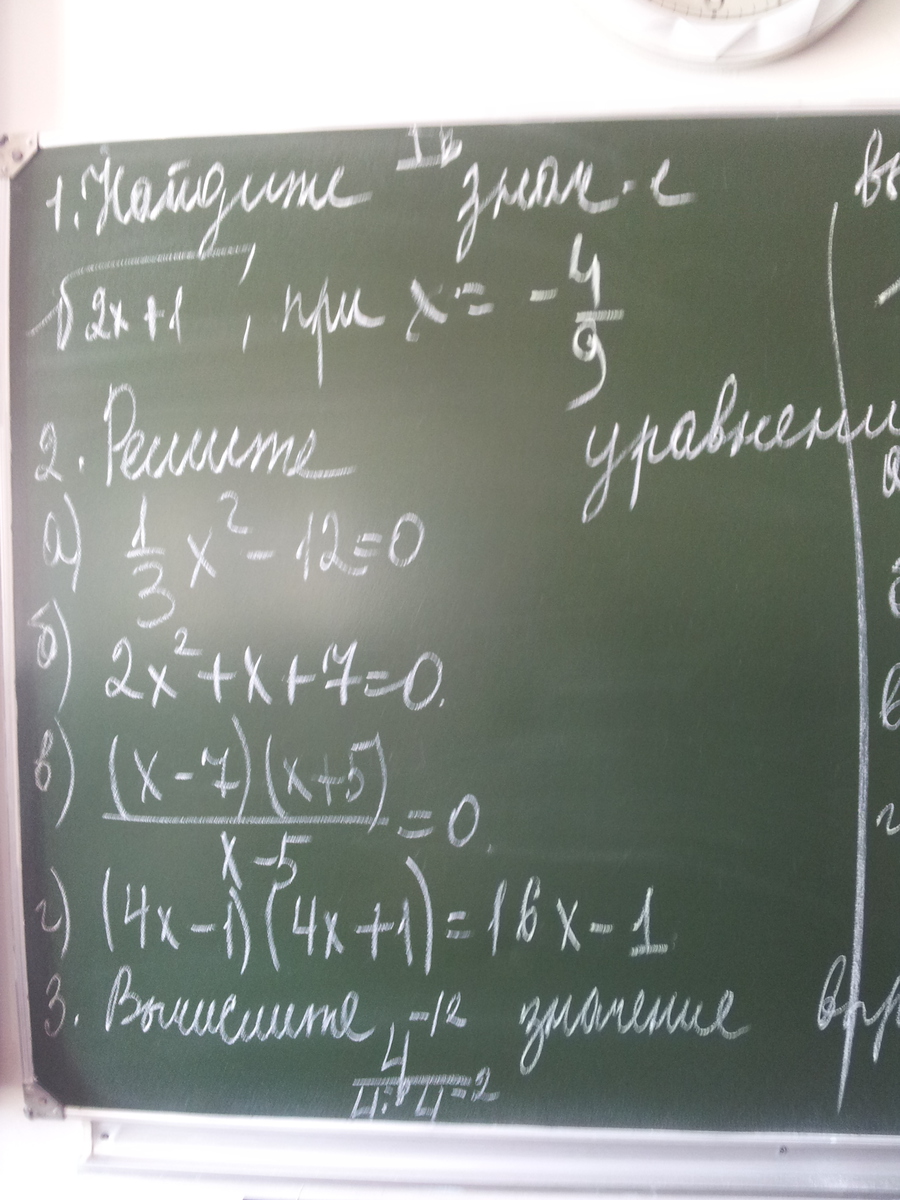 Iв
1. Найдите знач-е
√2x+1, при x = -4/9
2. Решите уравнени
а) 1/3 x² - 12=0
б) 2x²+x+7=0.
в) (x-7)(x+5)/x-5 =0.
г) (4x-1)(4x+1)=16x-1
3. Вычислите значение
4⁻¹²